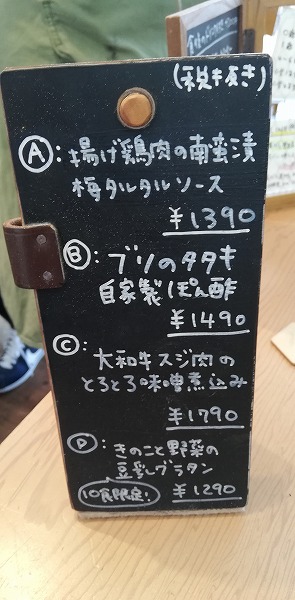 (税抜き)
Ⓐ:揚げ鶏肉の南蛮漬
梅タルタルソース
¥1390
Ⓑ:ブリのタタキ
自家製ぽん酢
¥1490
Ⓒ:
大和牛スジ肉の
とろとろ味噌煮込み
¥1790
Ⓓ:
きのこと野菜の
豆乳グラタン
10食限定!
¥1290